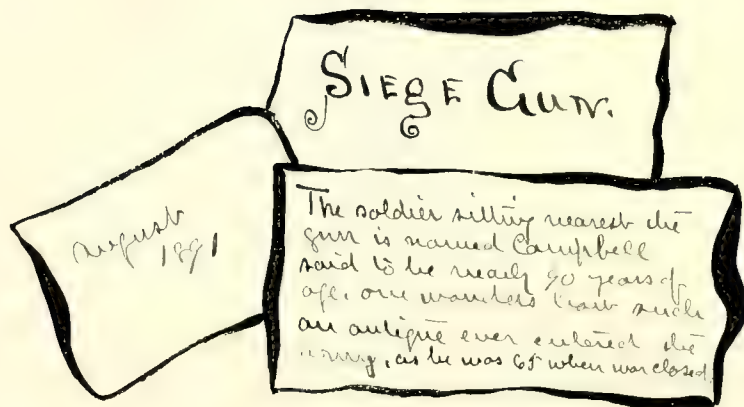 SIEGE GUN.
August
1891
The soldier sitting nearest the
gun is named Campbell
said to be nearly 90 years of
age. one wonders how such
an antique ever entered the
army, as he was 65 when war closed.